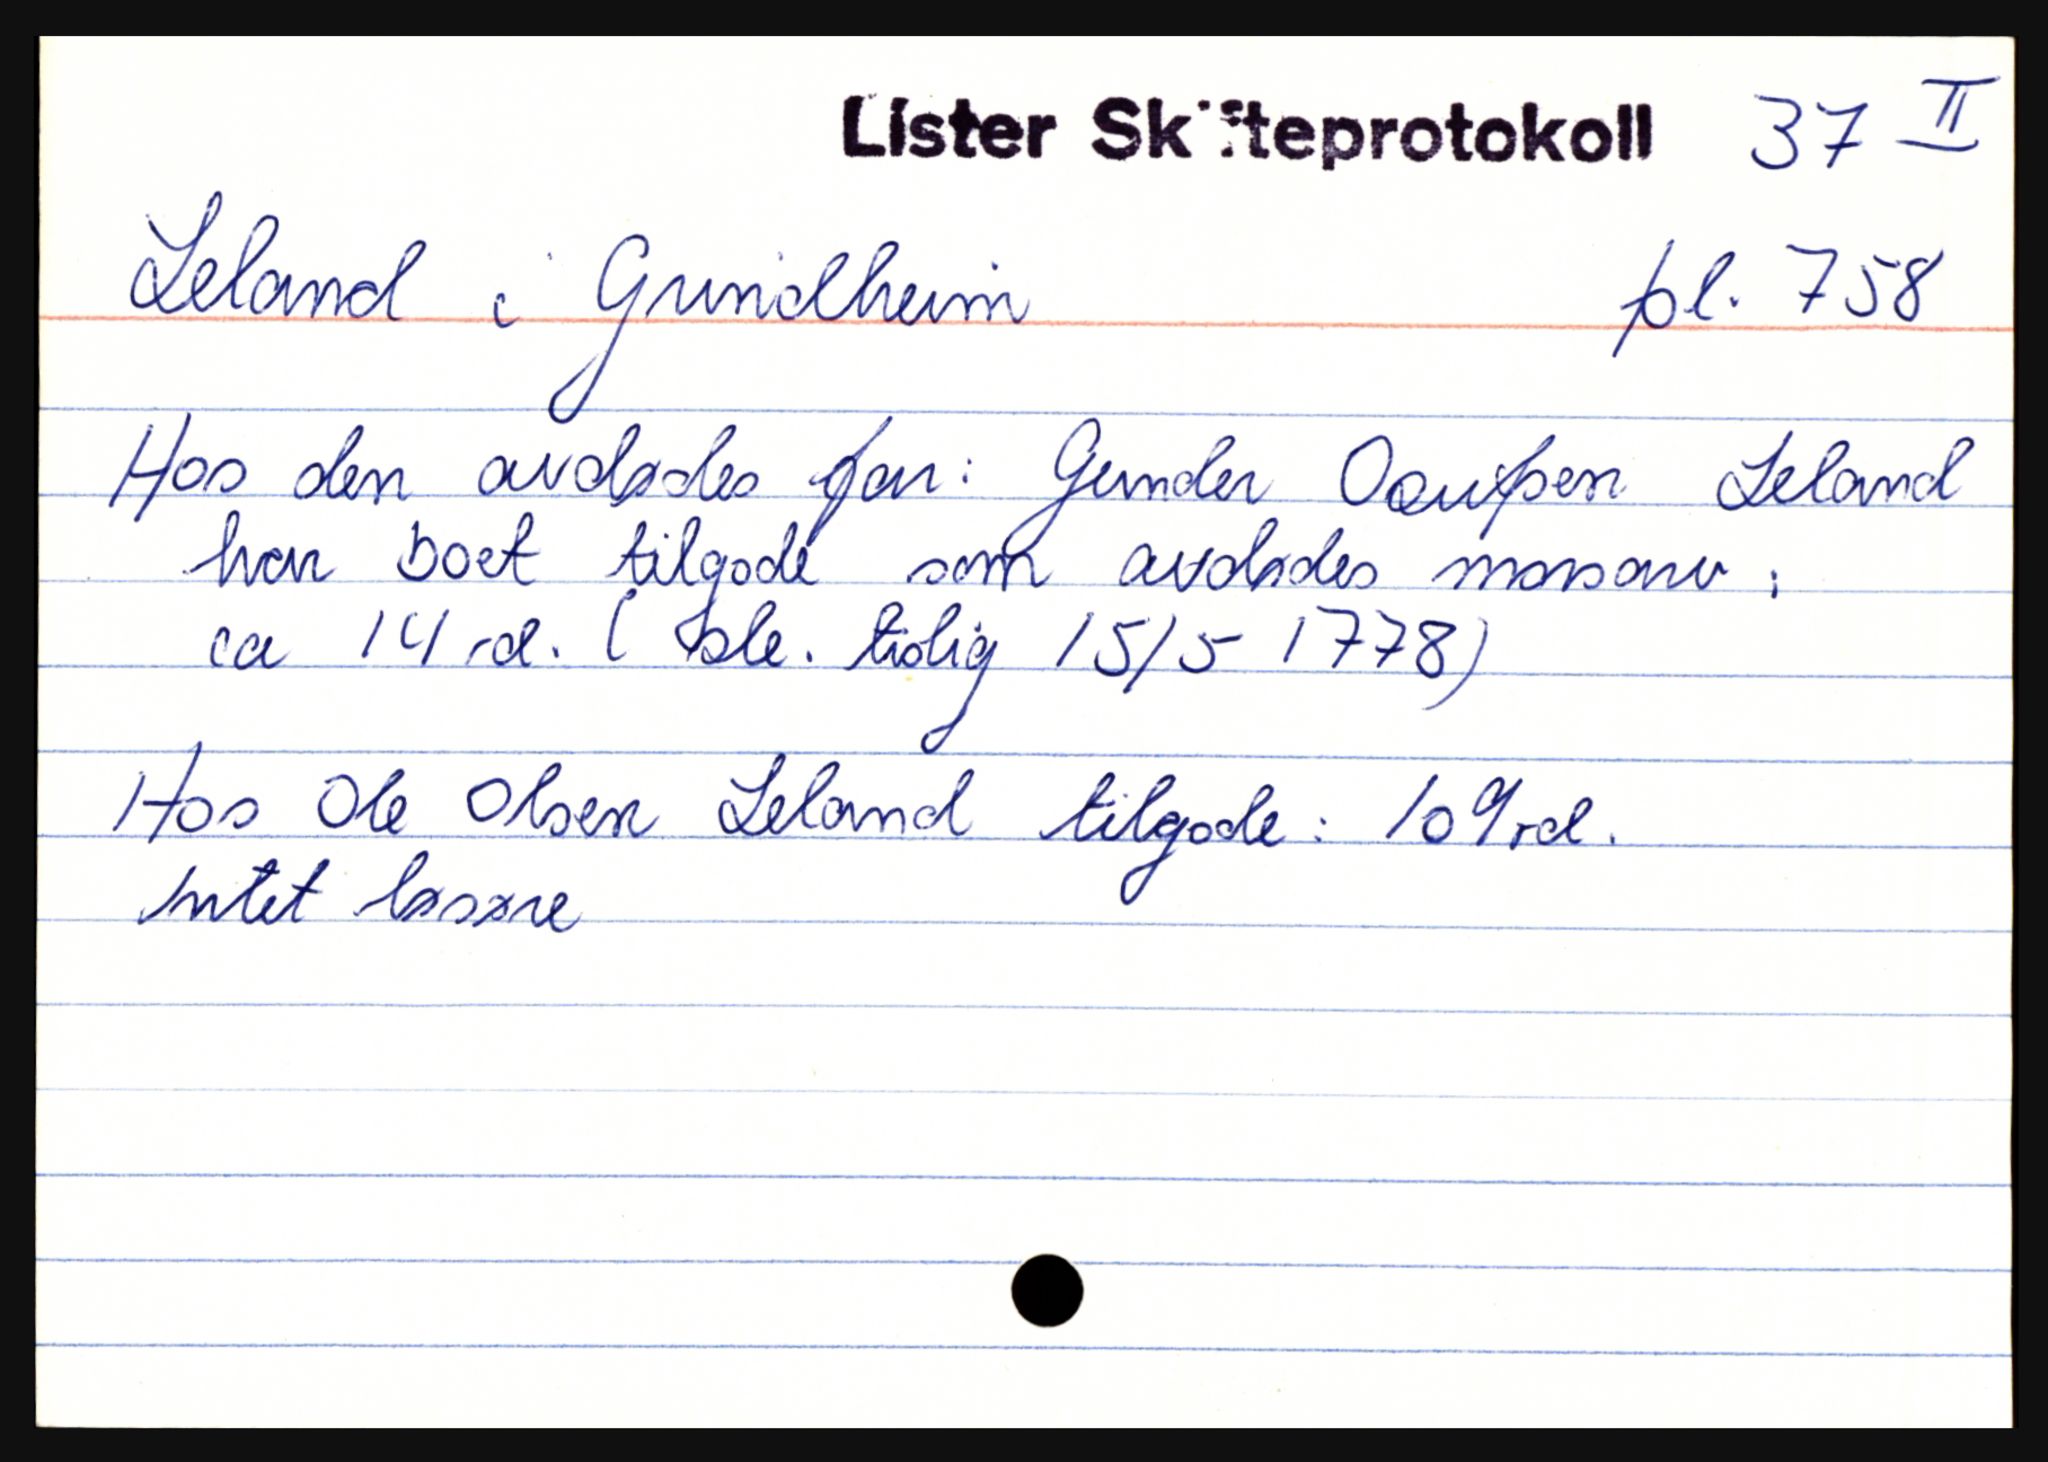 Lister Skifteprotokoll 37 II
Leland i Grindheim pl. 758
Hos den avdødes far: Gunder Oaufsen Leland
har boet tilgode som avdødes morsarv:
ca 14 rd. (Skle. tidlig 15/5 1778)
Hos Ole Olsen Leland tilgode: 109 rd.
Intet løsøre